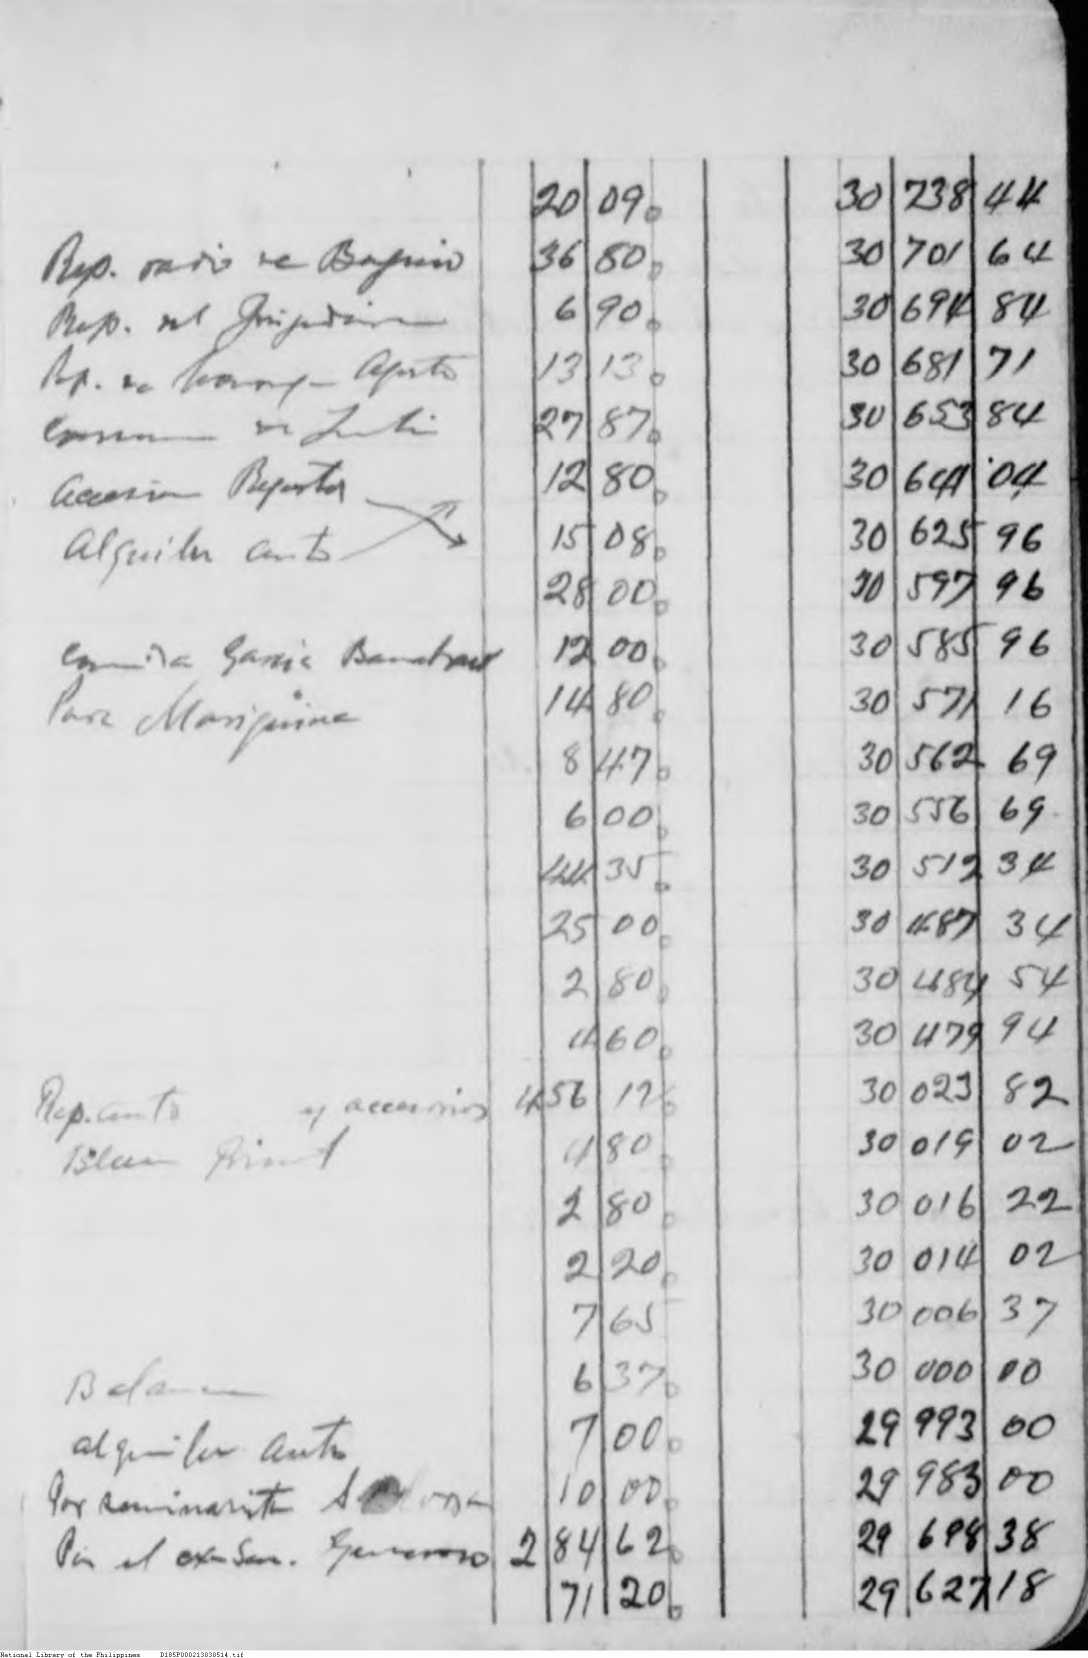 20 09 30 738 44
Rep. radio de Baguio 36 80 30 701 64
Rep. del Frigidaire 6 90 30 694 84
Rp. de Agosto 13 13 30 681 71
de Julio 27 87 30 653 84
Accesoria Repuestos 12 80 30 641 04
Alquiler auto 15 08 30 625 96
28 00 30 597 96
Comida Garcia 12 00 30 585 96
Para Mariquina 14 80 30 571 16
8 47 30 562 69
6 00 30 556 69
44 35 30 512 34
25 00 30 487 34
2 80 30 484 54
4 60 30 479 94
Rep. auto y accesorios 456 12 30 023 82
Blue Print 4 80 30 019 02
2 80 30 016 22
2 20 30 014 02
7 65 30 006 37
Balance 6 37 30 000 00
alquiler auto 7 00 29 993 00
Por seminarista 10 00 29 983 00
Por el ex-Sen. Generoso 2 84 62 29 698 38
71 20 29 627 18
National Library of the Philippines D185P000213038514.tif